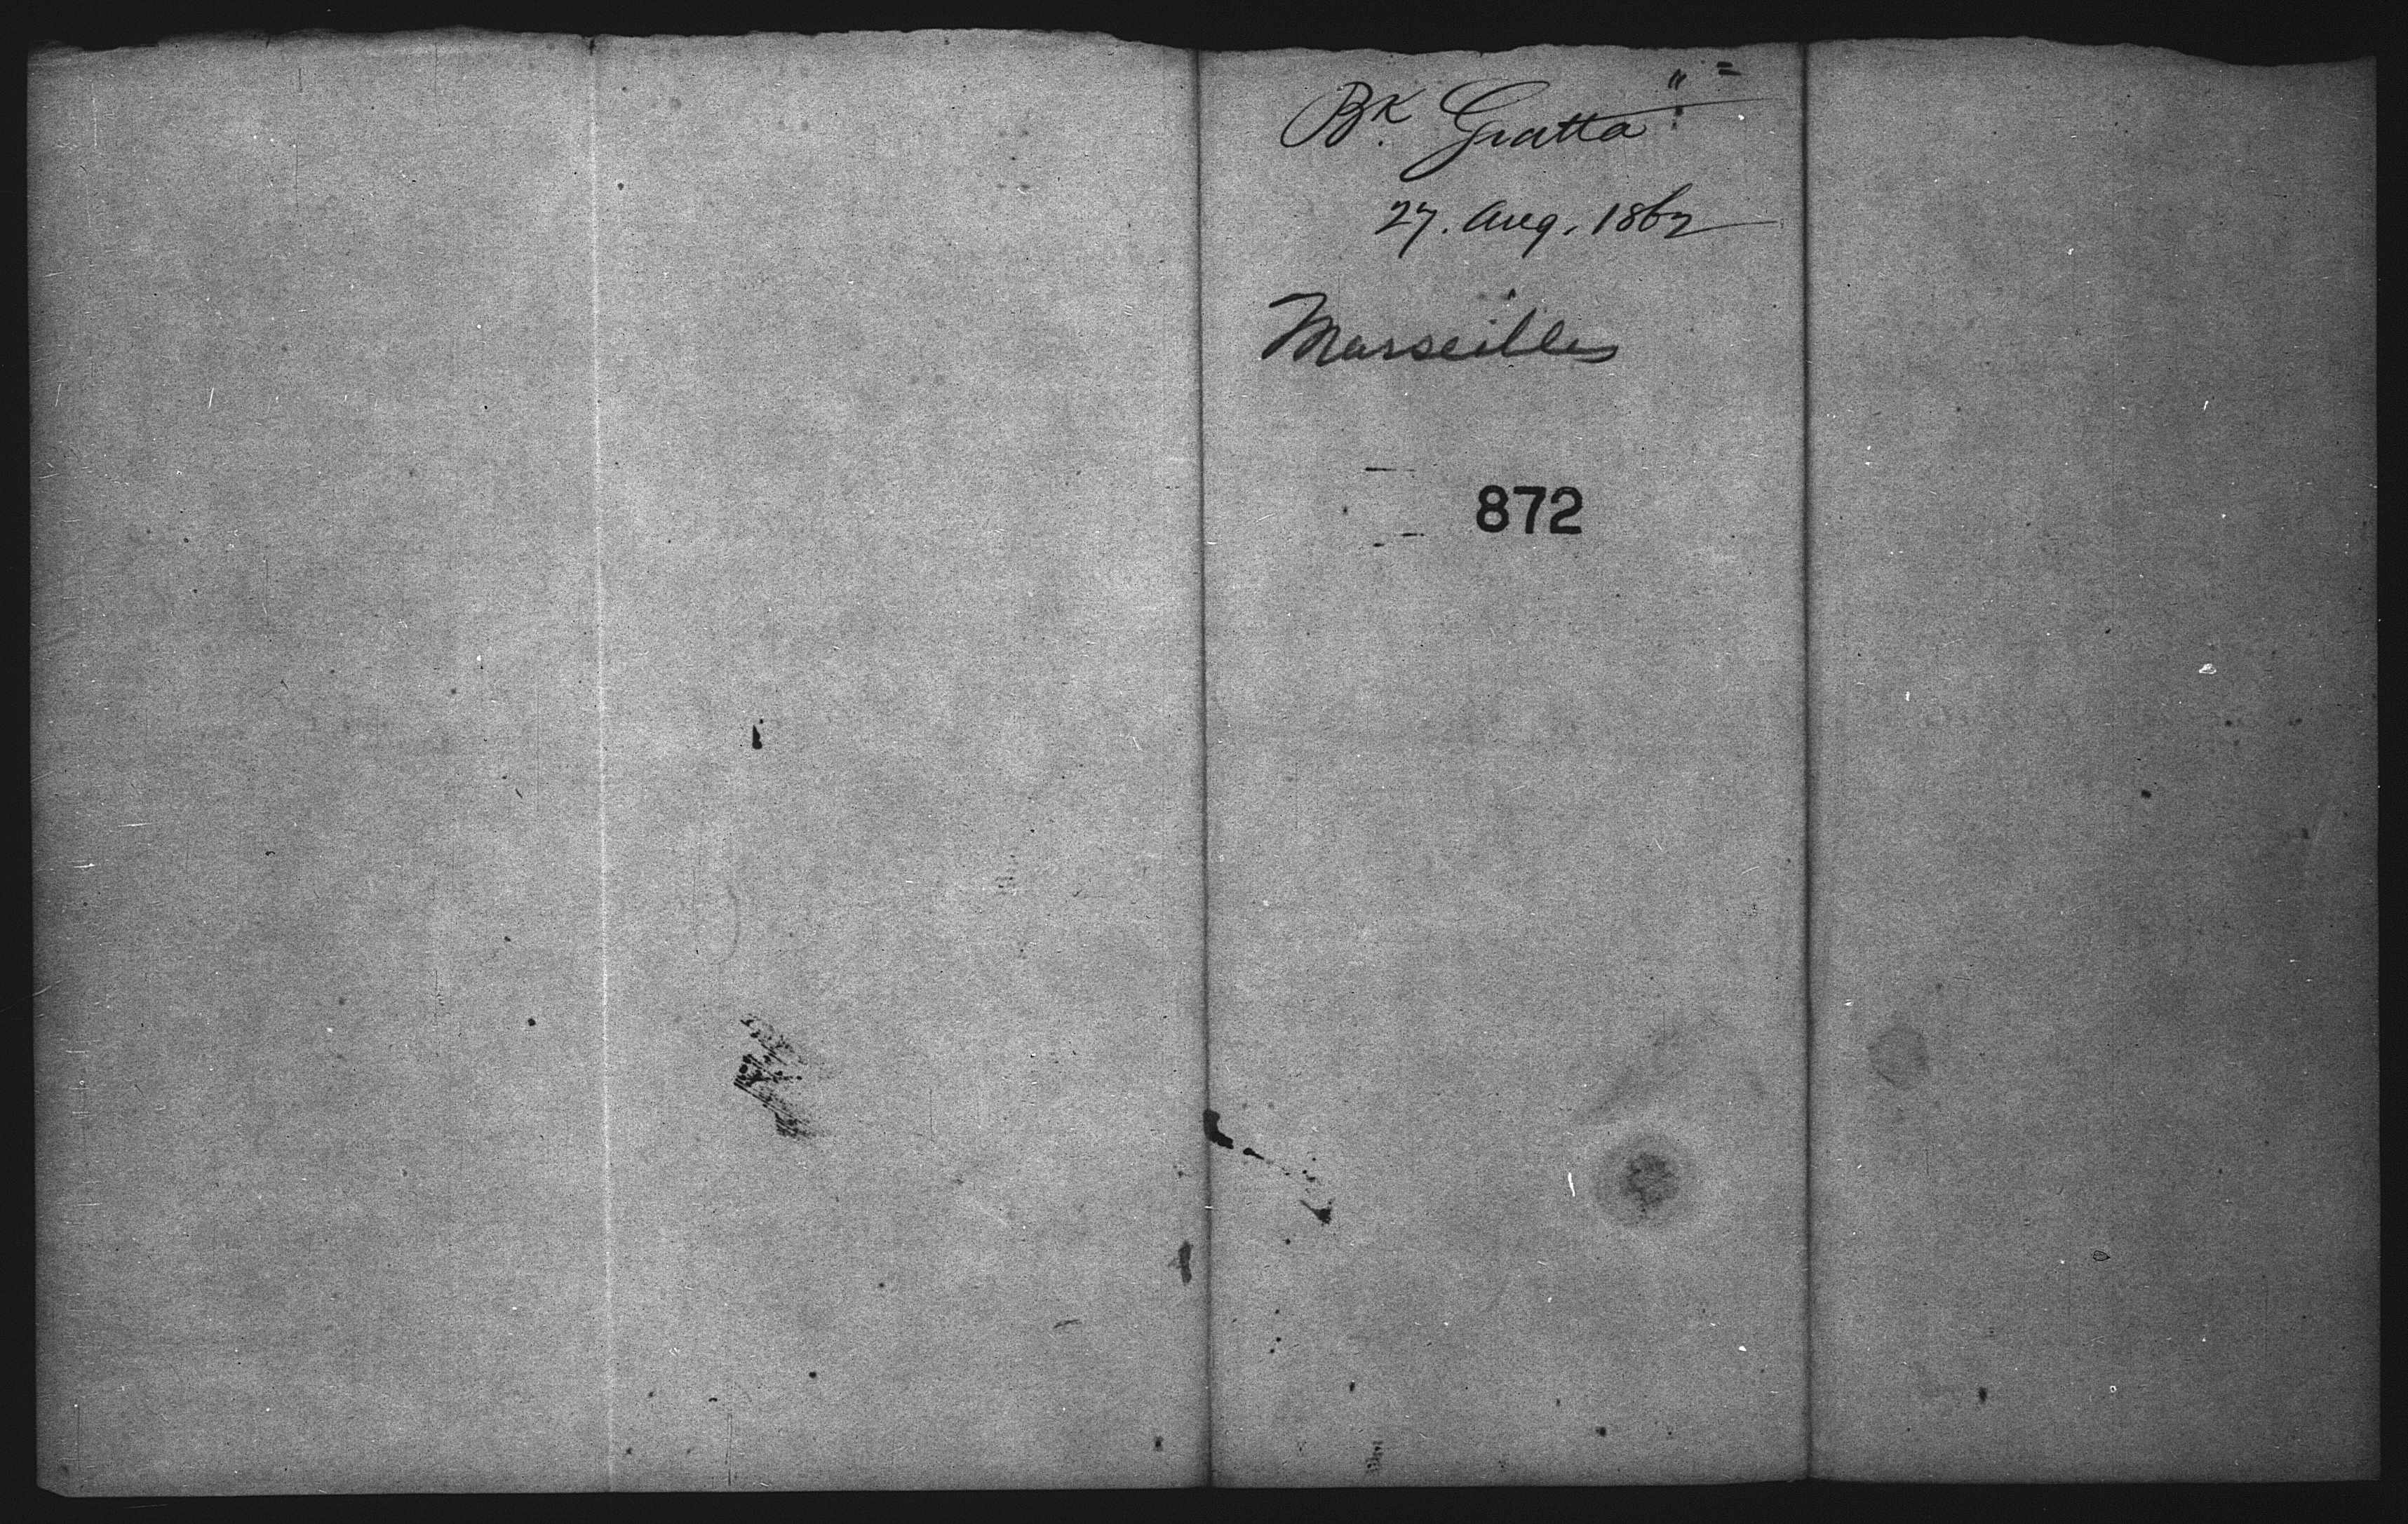 Bk. Gratta "
27. Aug. 1862
Marseilles
872